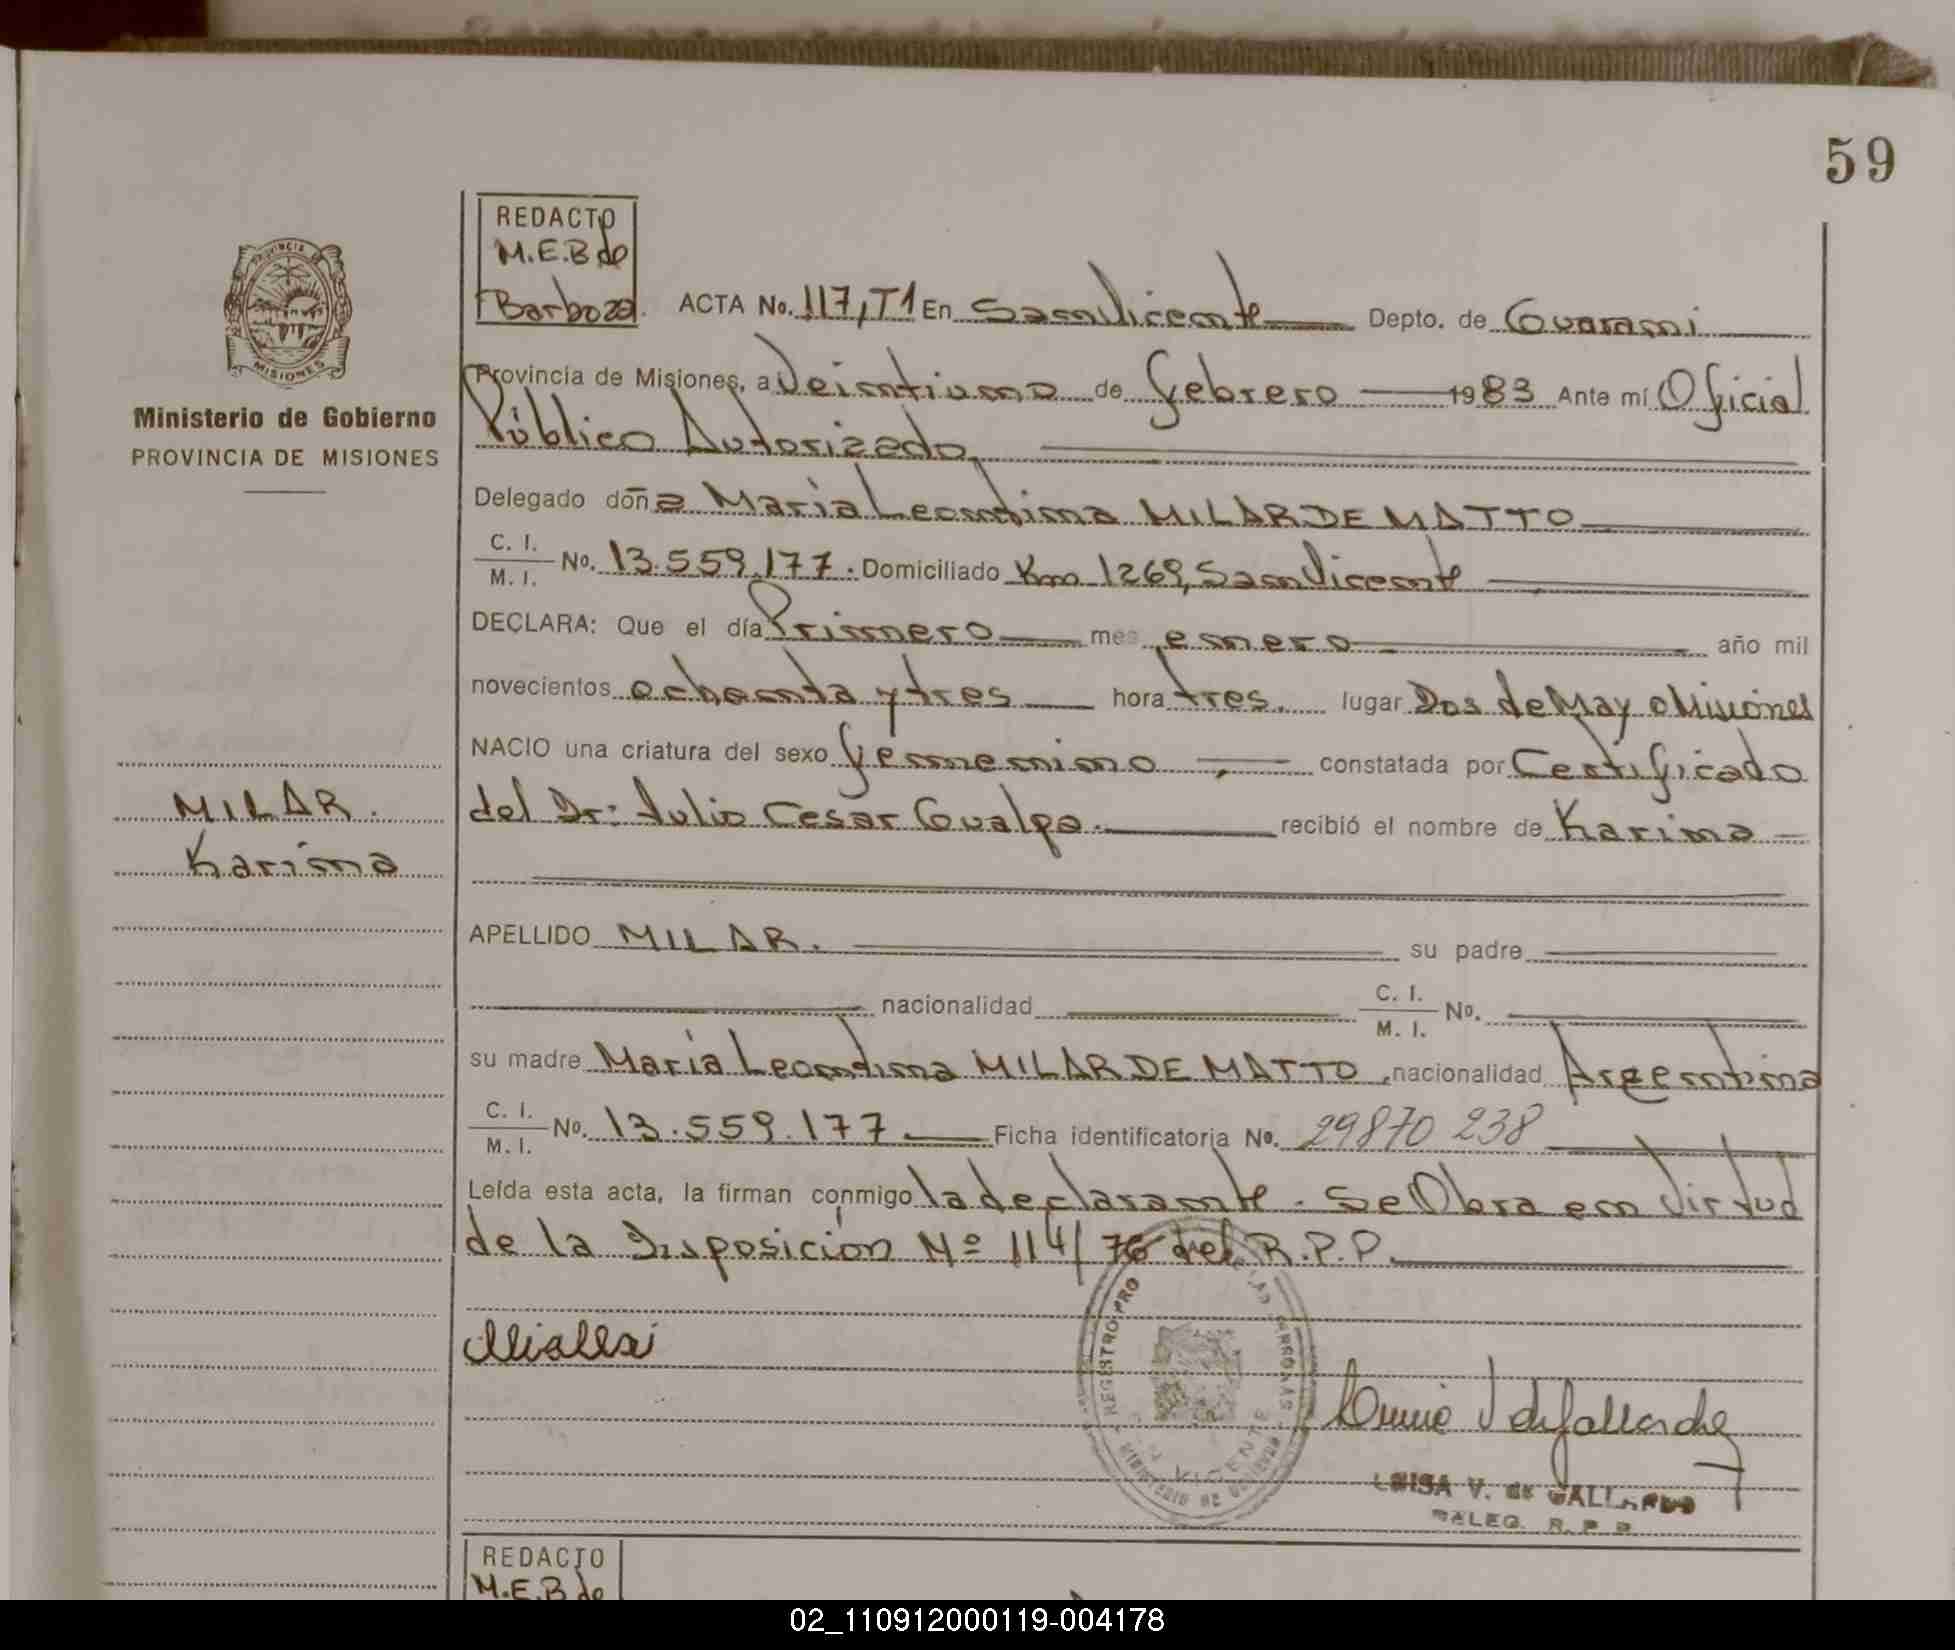 59
PROVINCIA
MISIONES
Ministerio de Gobierno
PROVINCIA DE MISIONES
MILAR.
Karina
REDACTO
M.E.B de
Barboza.
ACTA No. 117, T1 En San Vicente Depto. de Guarani
Provincia de Misiones, a Veintiuno de febrero 1983 Ante mí Oficial
Público Autorizado
Delegado doña Maria Leontina MILAR DE MATTO
C. I.
M. I. No. 13.559.177. Domiciliado Km 1269, San Vicente
DECLARA: Que el día Primero mes enero año mil
novecientos ochenta y tres hora tres. lugar Dos de Mayo Misiones
NACIO una criatura del sexo femenino constatada por Certificado
del Dr: Julio Cesar Gualpa. recibió el nombre de Karina
APELLIDO MILAR. su padre
nacionalidad C. I.
M. I. No.
su madre Maria Leontina MILAR DE MATTO, nacionalidad Argentina
C. I.
M. I. No. 13.559.177 Ficha identificatoria No. 29870 238
Leída esta acta, la firman conmigo la declarante. Se Obra en Virtud
de la Disposición Nº 114/76 del R.P.P.
REGISTRO PRO
VICENTE
LUISA V. de GALLARDO
DELEG. R. P. P.
REDACTO
M.E.B de
02_110912000119-004178